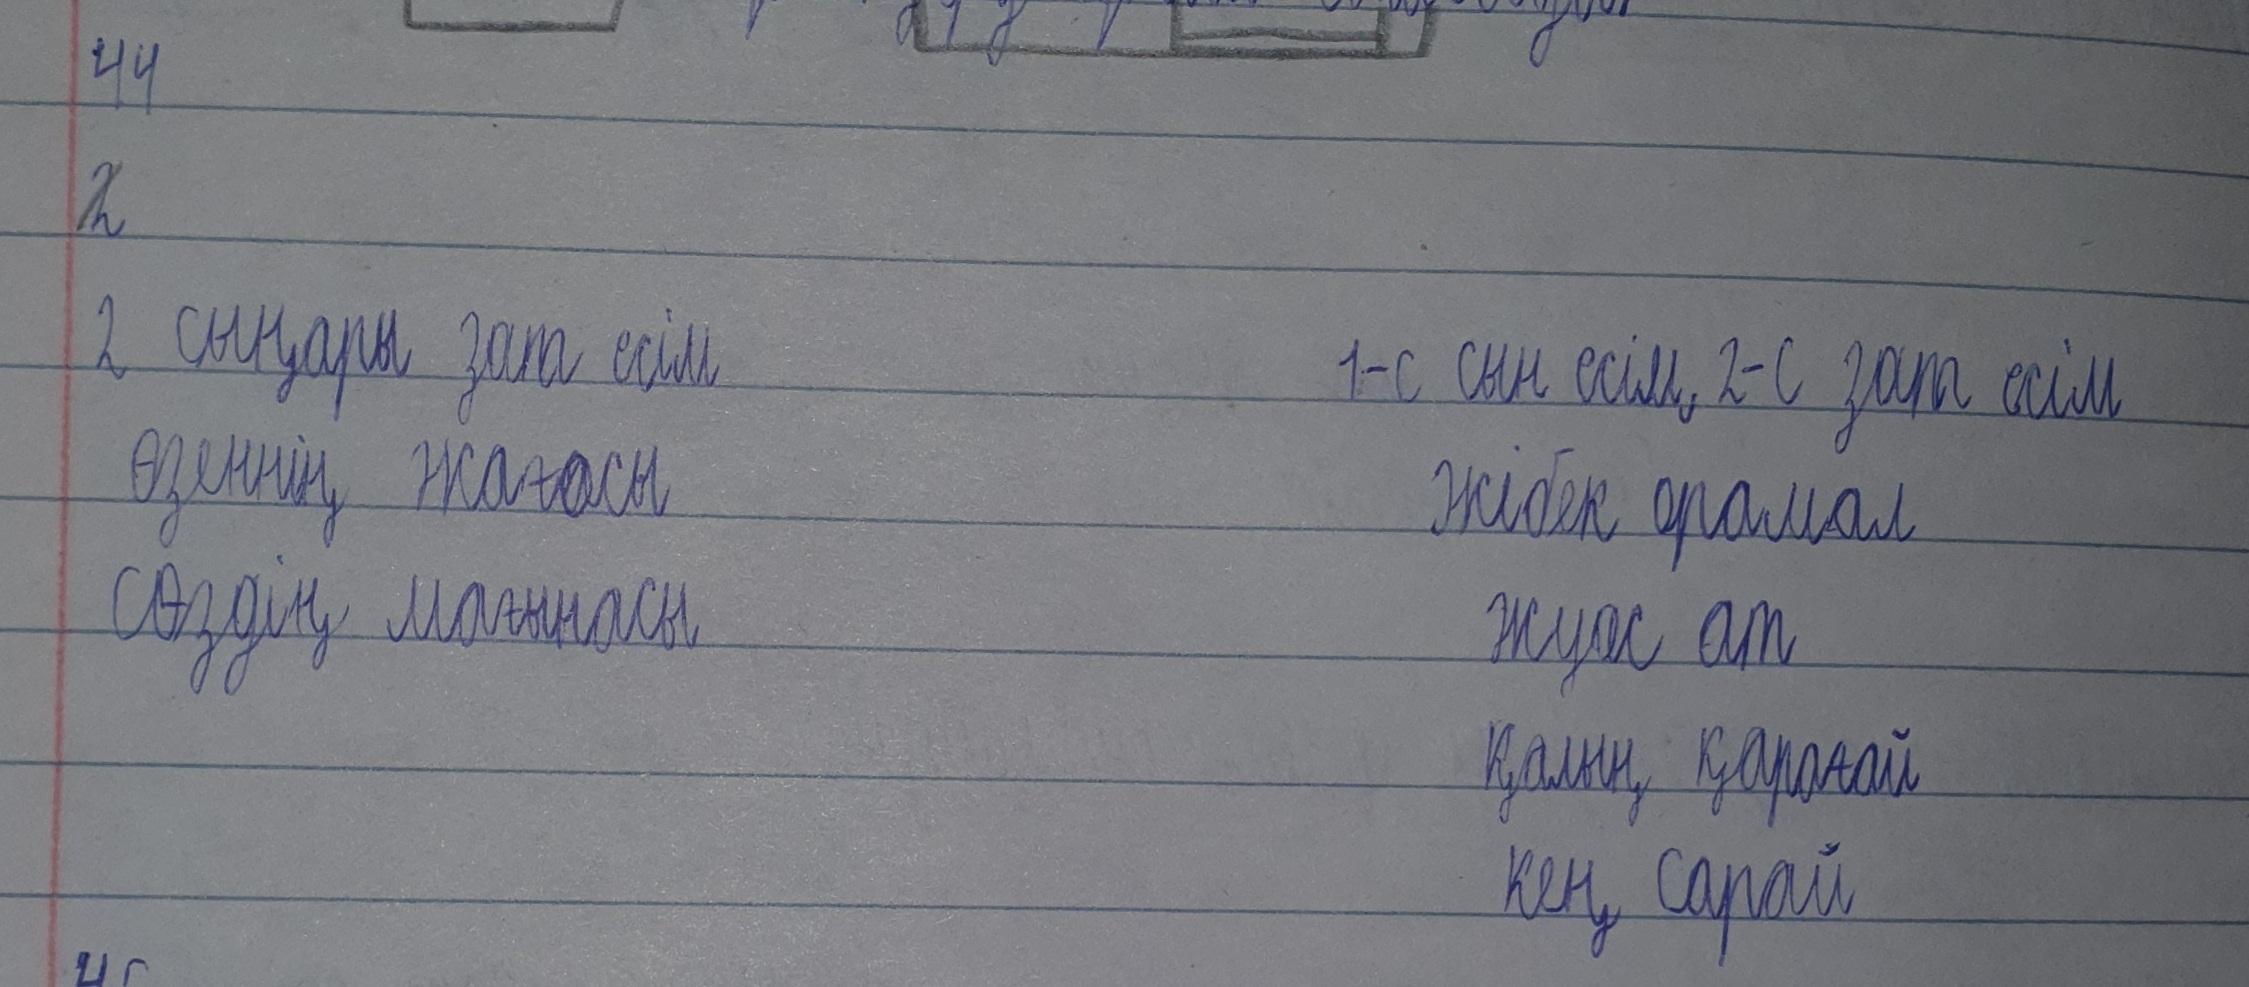 44
2
2 сыңары зат есім 1-с сын есім, 2-с зат есім
өзеннің жағасы жібек орамал
сөздің мағынасы жуас ат
қалың қарағай
кең сарай